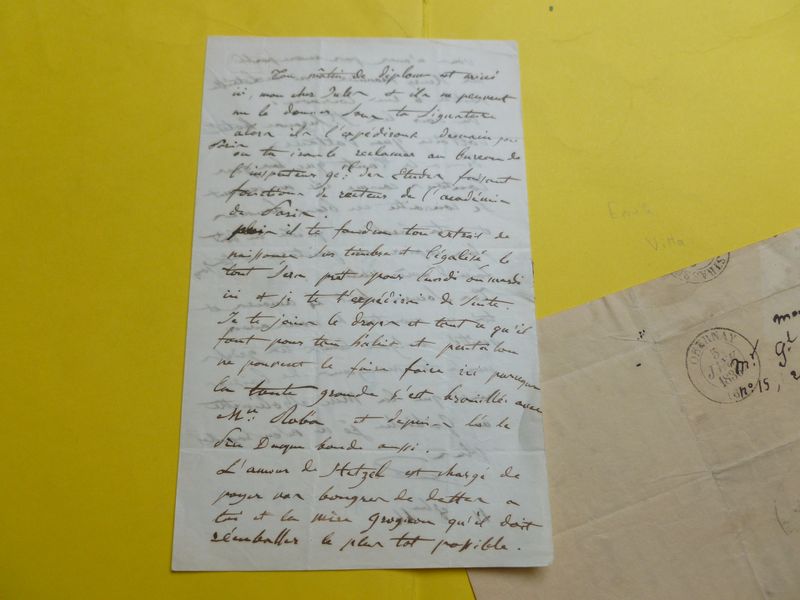 Ton mâtin de diplome est arrivé
ici, mon cher Jules et ils ne peuvent
me le donner sans ta signature
alors ils l'expédieront demain pour
Paris
où tu iras le reclamer au bureau de
l'inspecteur gé.al des études faisant
fonctions de recteur de l'académie
de Paris.
il te faudra ton extrait de
naissance sur timbre et légalisé le
tout sera pret pour lundi ou mardi
ici et je te l'expédierai de suite.
Je te joins le drap et tout ce qu'il
faut pour ton habit et pantalon
ne pouvant le faire faire ici parceque
la tante grande s'est brouillée avec
M.me Robin et depuis là le
Duque boude aussi.
L'amour de Hetzel est chargé de
payer vos bougres de dettes a
toi et la mère Grognon qu'il doit
réemballer le plus tot possible.
Emile
Villa
OBERNAY
5
JANV
mon
Mr
G.l
no 15, 2